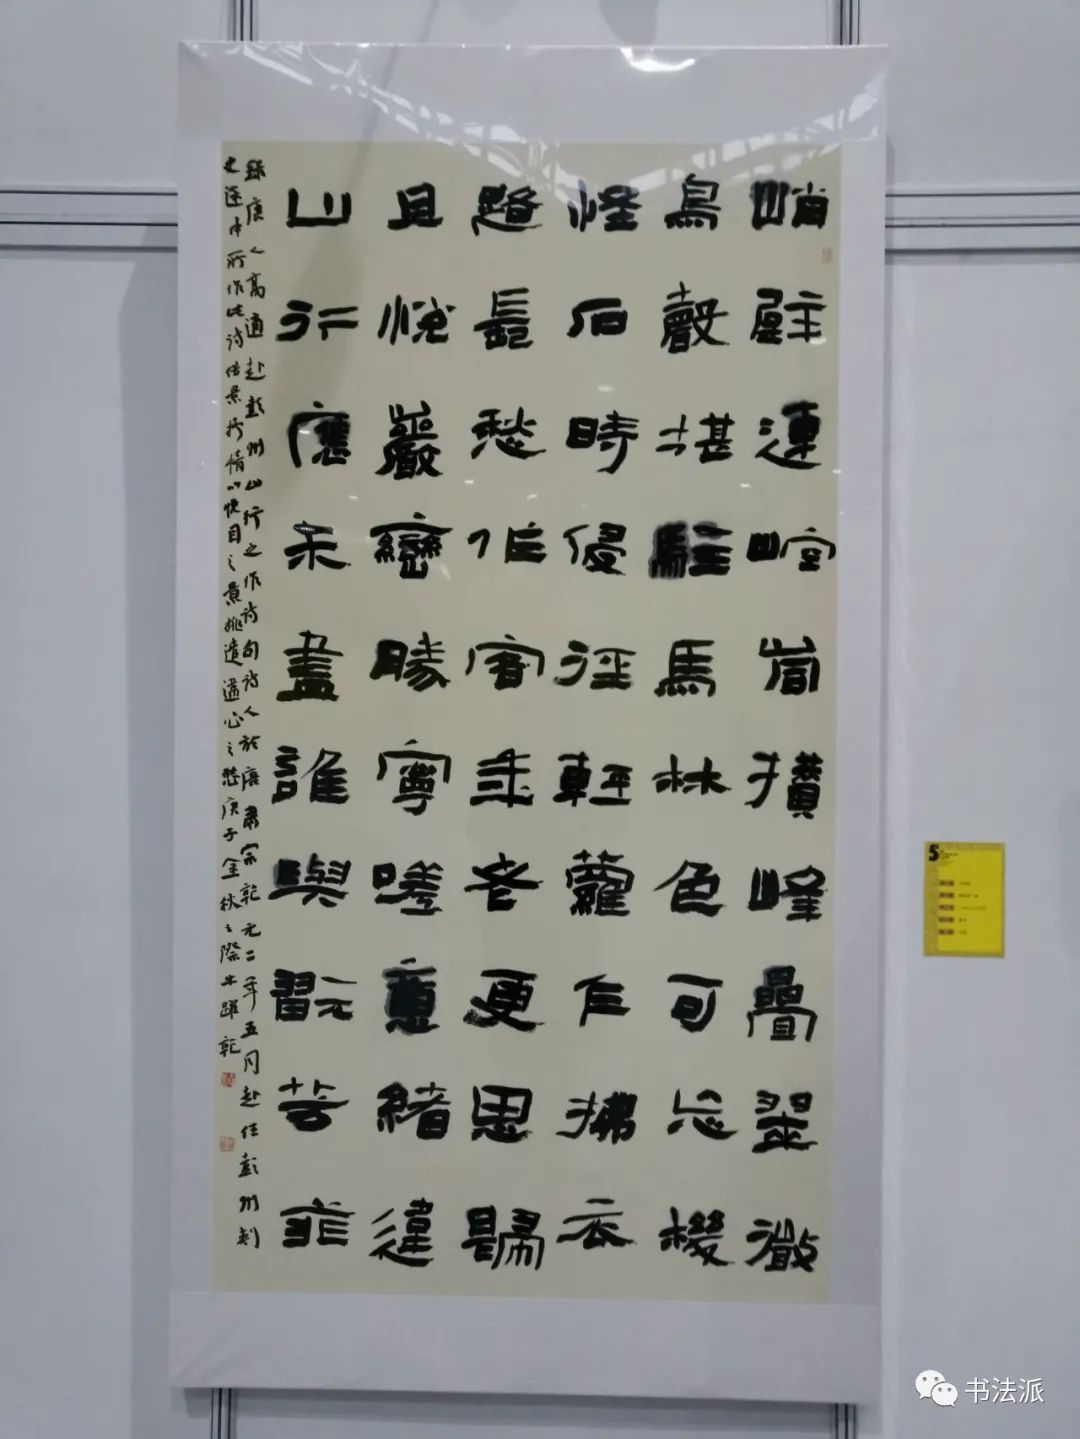 峭壁連崆峒攢峰疊翠微
鳥聲堪駐馬林色可忘機
怪石時侵徑輕蘿乍拂衣
路長愁作客年老更思歸
且悅巖巒勝寧嗟意緒違
山行應未盡誰與翫芳菲
錄唐人高適赴彭州山行之作詩句詩人於唐肅宗乾元二年五月赴任彭州刺
史途中所作此詩借景抒情以悅目之景排遣適心之愁庚子金秋之際牛躍乾
5
书法派